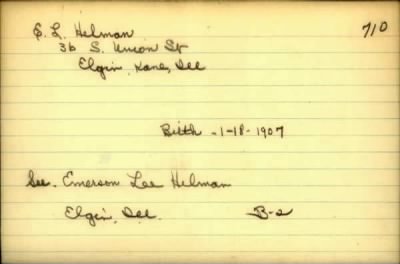 E. L. Helman 710
36 S. Union St
Elgin, Kane, Ill
Birth -1-18-1907
See. Emerson Lee Helman
Elgin, Ill. B-2